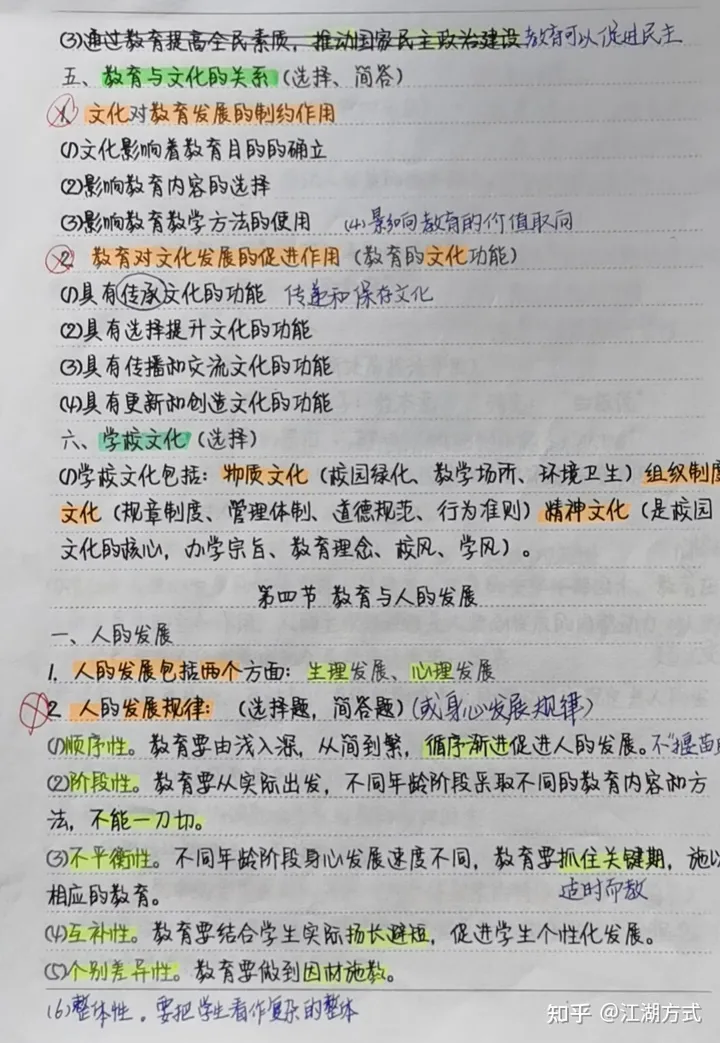 (3)通过教育提高全民素质，推动国家民主政治建设 教育可以促进民主
五、教育与文化的关系(选择、简答)
1. 文化对教育发展的制约作用
(1)文化影响着教育目的的确立
(2)影响教育内容的选择
(3)影响教育教学方法的使用 (4)影响教育的价值取向
2. 教育对文化发展的促进作用(教育的文化功能)
(1)具有传承文化的功能 传递和保存文化
(2)具有选择提升文化的功能
(3)具有传播和交流文化的功能
(4)具有更新和创造文化的功能
六、学校文化(选择)
(1)学校文化包括：物质文化(校园绿化、教学场所、环境卫生)组织制度
文化(规章制度、管理体制、道德规范、行为准则)精神文化(是校园
文化的核心，办学宗旨、教育理念、校风、学风)。
第四节 教育与人的发展
一、人的发展
1. 人的发展包括两个方面：生理发展、心理发展
2. 人的发展规律：(选择题，简答题)(或身心发展规律)
(1)顺序性。教育要由浅入深，从简到繁，循序渐进促进人的发展。不"揠苗
(2)阶段性。教育要从实际出发，不同年龄阶段采取不同的教育内容和方
法，不能一刀切。
(3)不平衡性。不同年龄阶段身心发展速度不同，教育要抓住关键期，施以
相应的教育。 适时而教
(4)互补性。教育要结合学生实际扬长避短，促进学生个性化发展。
(5)个别差异性。教育要做到因材施教。
(6)整体性。要把学生看作复杂的整体
知乎 @江湖方式